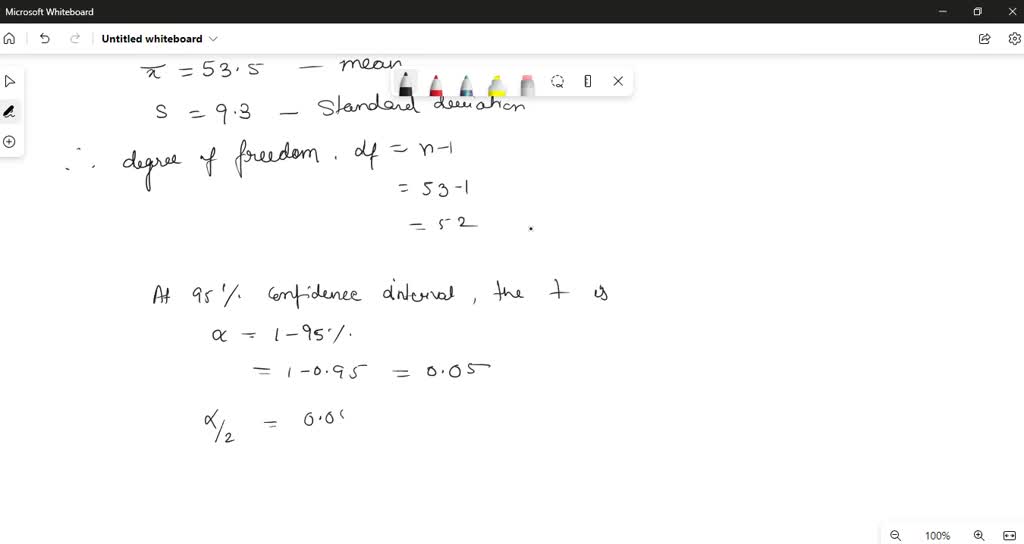 Microsoft Whiteboard
Untitled whiteboard
x̄ = 53.5 – mean
S = 9.3 – Standard deviation
∴ degree of freedom. df = n-1
= 53-1
= 52
At 95%. Confidence interval, the t is
α = 1-95%.
= 1-0.95 = 0.05
α/2 = 0.0
100%